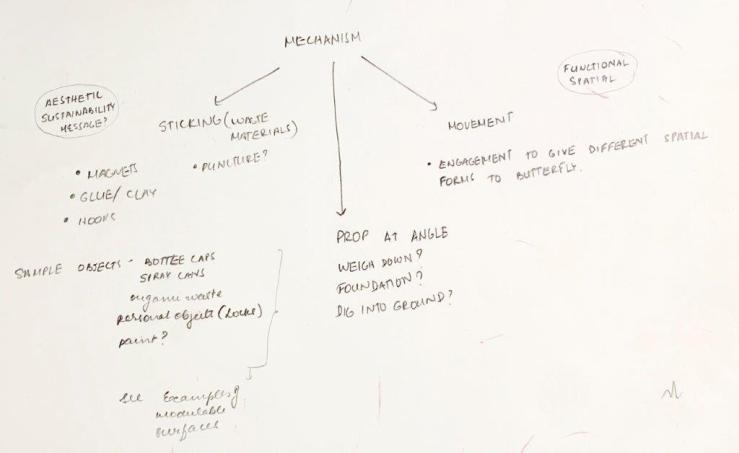 MECHANISM
AESTHETIC
SUSTAINABILITY
MESSAGE?
FUNCTIONAL
SPATIAL
STICKING (WASTE
MATERIALS)
• MAGNETS
• GLUE/ CLAY
• HOOKS
• PUNCTURE?
MOVEMENT
• ENGAGEMENT TO GIVE DIFFERENT SPATIAL
FORMS TO BUTTERFLY.
PROP AT ANGLE
WEIGH DOWN?
FOUNDATION?
DIG INTO GROUND?
SAMPLE OBJECTS - BOTTLE CAPS
SPRAY CANS
organic waste
personal objects (locks)
paint?
see Examples of
modulable
surfaces